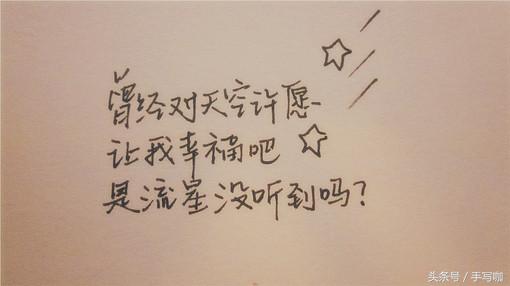 曾经对天空许愿
让我幸福吧
是流星没听到吗？
头条号/手写咖